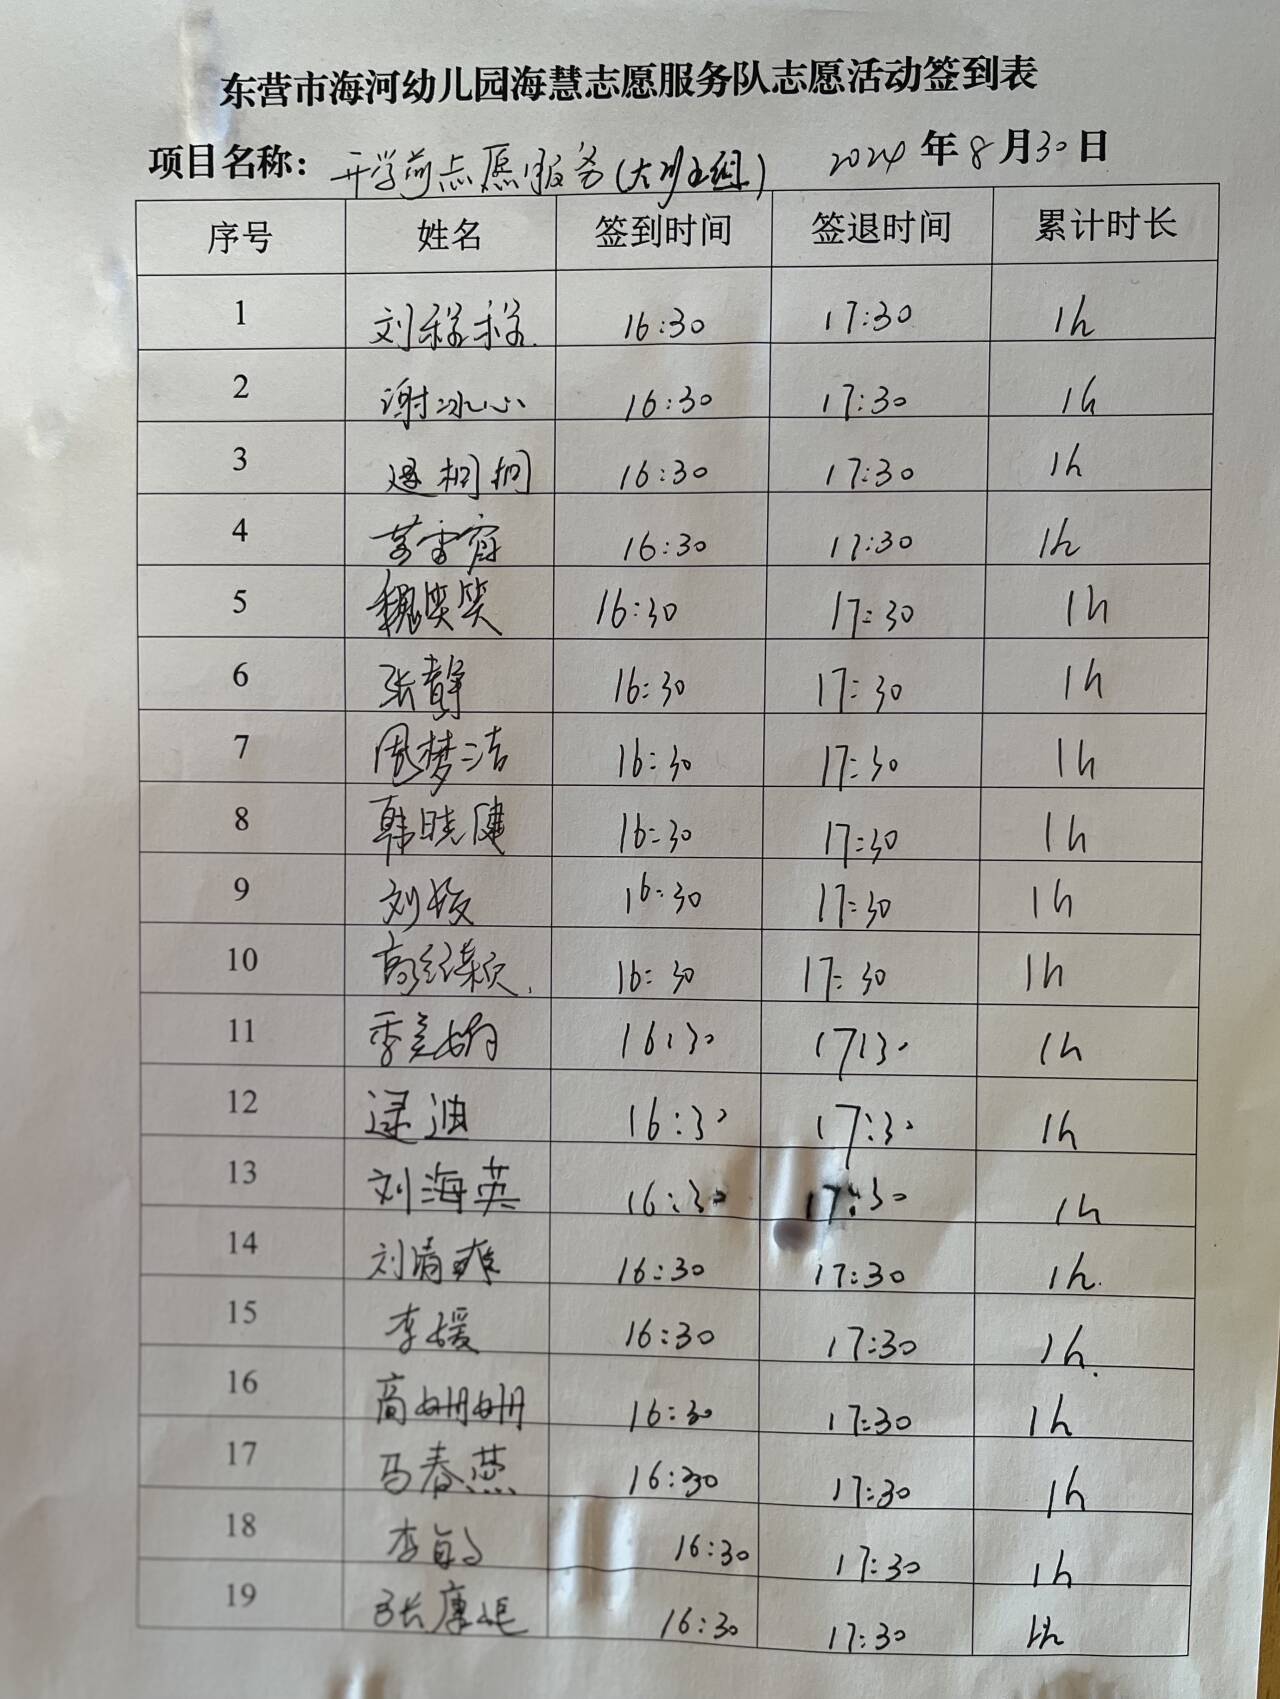 东营市海河幼儿园海慧志愿服务队志愿活动签到表
项目名称：开学前志愿服务（大班组） 2024年8月30日
序号 姓名 签到时间 签退时间 累计时长
1 刘 16:30 17:30 1h
2 谢冰心 16:30 17:30 1h
3 桐桐 16:30 17:30 1h
4 16:30 17:30 1h
5 魏笑笑 16:30 17:30 1h
6 张静 16:30 17:30 1h
7 周梦洁 16:30 17:30 1h
8 韩晓健 16:30 17:30 1h
9 刘 16:30 17:30 1h
10 高 16:30 17:30 1h
11 季美娟 16:30 17:30 1h
12 逯迪 16:30 17:30 1h
13 刘海英 16:30 17:30 1h
14 刘清爽 16:30 17:30 1h.
15 李媛 16:30 17:30 1h.
16 高姗姗 16:30 17:30 1h
17 马春燕 16:30 17:30 1h
18 李 16:30 17:30 1h
19 张康 16:30 17:30 1h